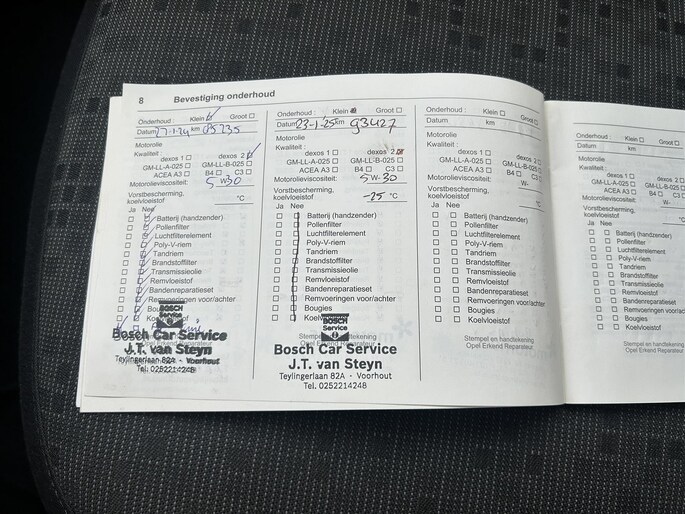 8 Bevestiging onderhoud
Onderhoud : Klein Groot
Datum 27-1-24 km
Motorolie
Kwaliteit :
dexos 1 dexos 2
GM-LL-A-025 GM-LL-B-025
ACEA A3 B4 C3
Motorolieviscositeit: 5 W30
Vorstbescherming,
koelvloeistof °C
Ja Nee
Batterij (handzender)
Pollenfilter
Luchtfilterelement
Poly-V-riem
Tandriem
Brandstoffilter
Transmissieolie
Remvloeistof
Bandenreparatieset
Remvoeringen voor/achter
BOSCH
Service
Bosch Car Service
J.T. van Steyn
Teylingerlaan 82a - Voorhout
Tel. 0252214248
Onderhoud : Klein Groot
Datum 23-1-25 km 93427
Motorolie
Kwaliteit :
dexos 1 dexos 2
GM-LL-A-025 GM-LL-B-025
ACEA A3 B4 C3
Motorolieviscositeit: 5 W-30
Vorstbescherming,
koelvloeistof -25 °C
Ja Nee
Batterij (handzender)
Pollenfilter
Luchtfilterelement
Poly-V-riem
Tandriem
Brandstoffilter
Transmissieolie
Remvloeistof
Bandenreparatieset
Remvoeringen voor/achter
Bougies
Koelvloeistof
BOSCH
Service
Stempel en handtekening
Opel Erkend Reparateur
Bosch Car Service
J.T. van Steyn
Teylingerlaan 82A - Voorhout
Tel. 0252214248
Onderhoud : Klein Groot
Datum km
Motorolie
Kwaliteit :
dexos 1 dexos 2
GM-LL-A-025 GM-LL-B-025
ACEA A3 B4 C3
Motorolieviscositeit: W-
Vorstbescherming,
koelvloeistof °C
Ja Nee
Batterij (handzender)
Pollenfilter
Luchtfilterelement
Poly-V-riem
Tandriem
Brandstoffilter
Transmissieolie
Remvloeistof
Bandenreparatieset
Remvoeringen voor/achter
Bougies
Koelvloeistof
Stempel en handtekening
Opel Erkend Reparateur
Onderhoud : Klein Groot
Datum km
Motorolie
Kwaliteit :
dexos 1 dexos 2
GM-LL-A-025 GM-LL-B-025
ACEA A3 B4 C3
Motorolieviscositeit: W-
Vorstbescherming,
koelvloeistof °C
Ja Nee
Batterij (handzender)
Pollenfilter
Luchtfilterelement
Poly-V-riem
Tandriem
Brandstoffilter
Transmissieolie
Remvloeistof
Bandenreparatieset
Remvoeringen voor/achter
Bougies
Koelvloeistof
Stempel en handtekening
Opel Erkend Reparateur